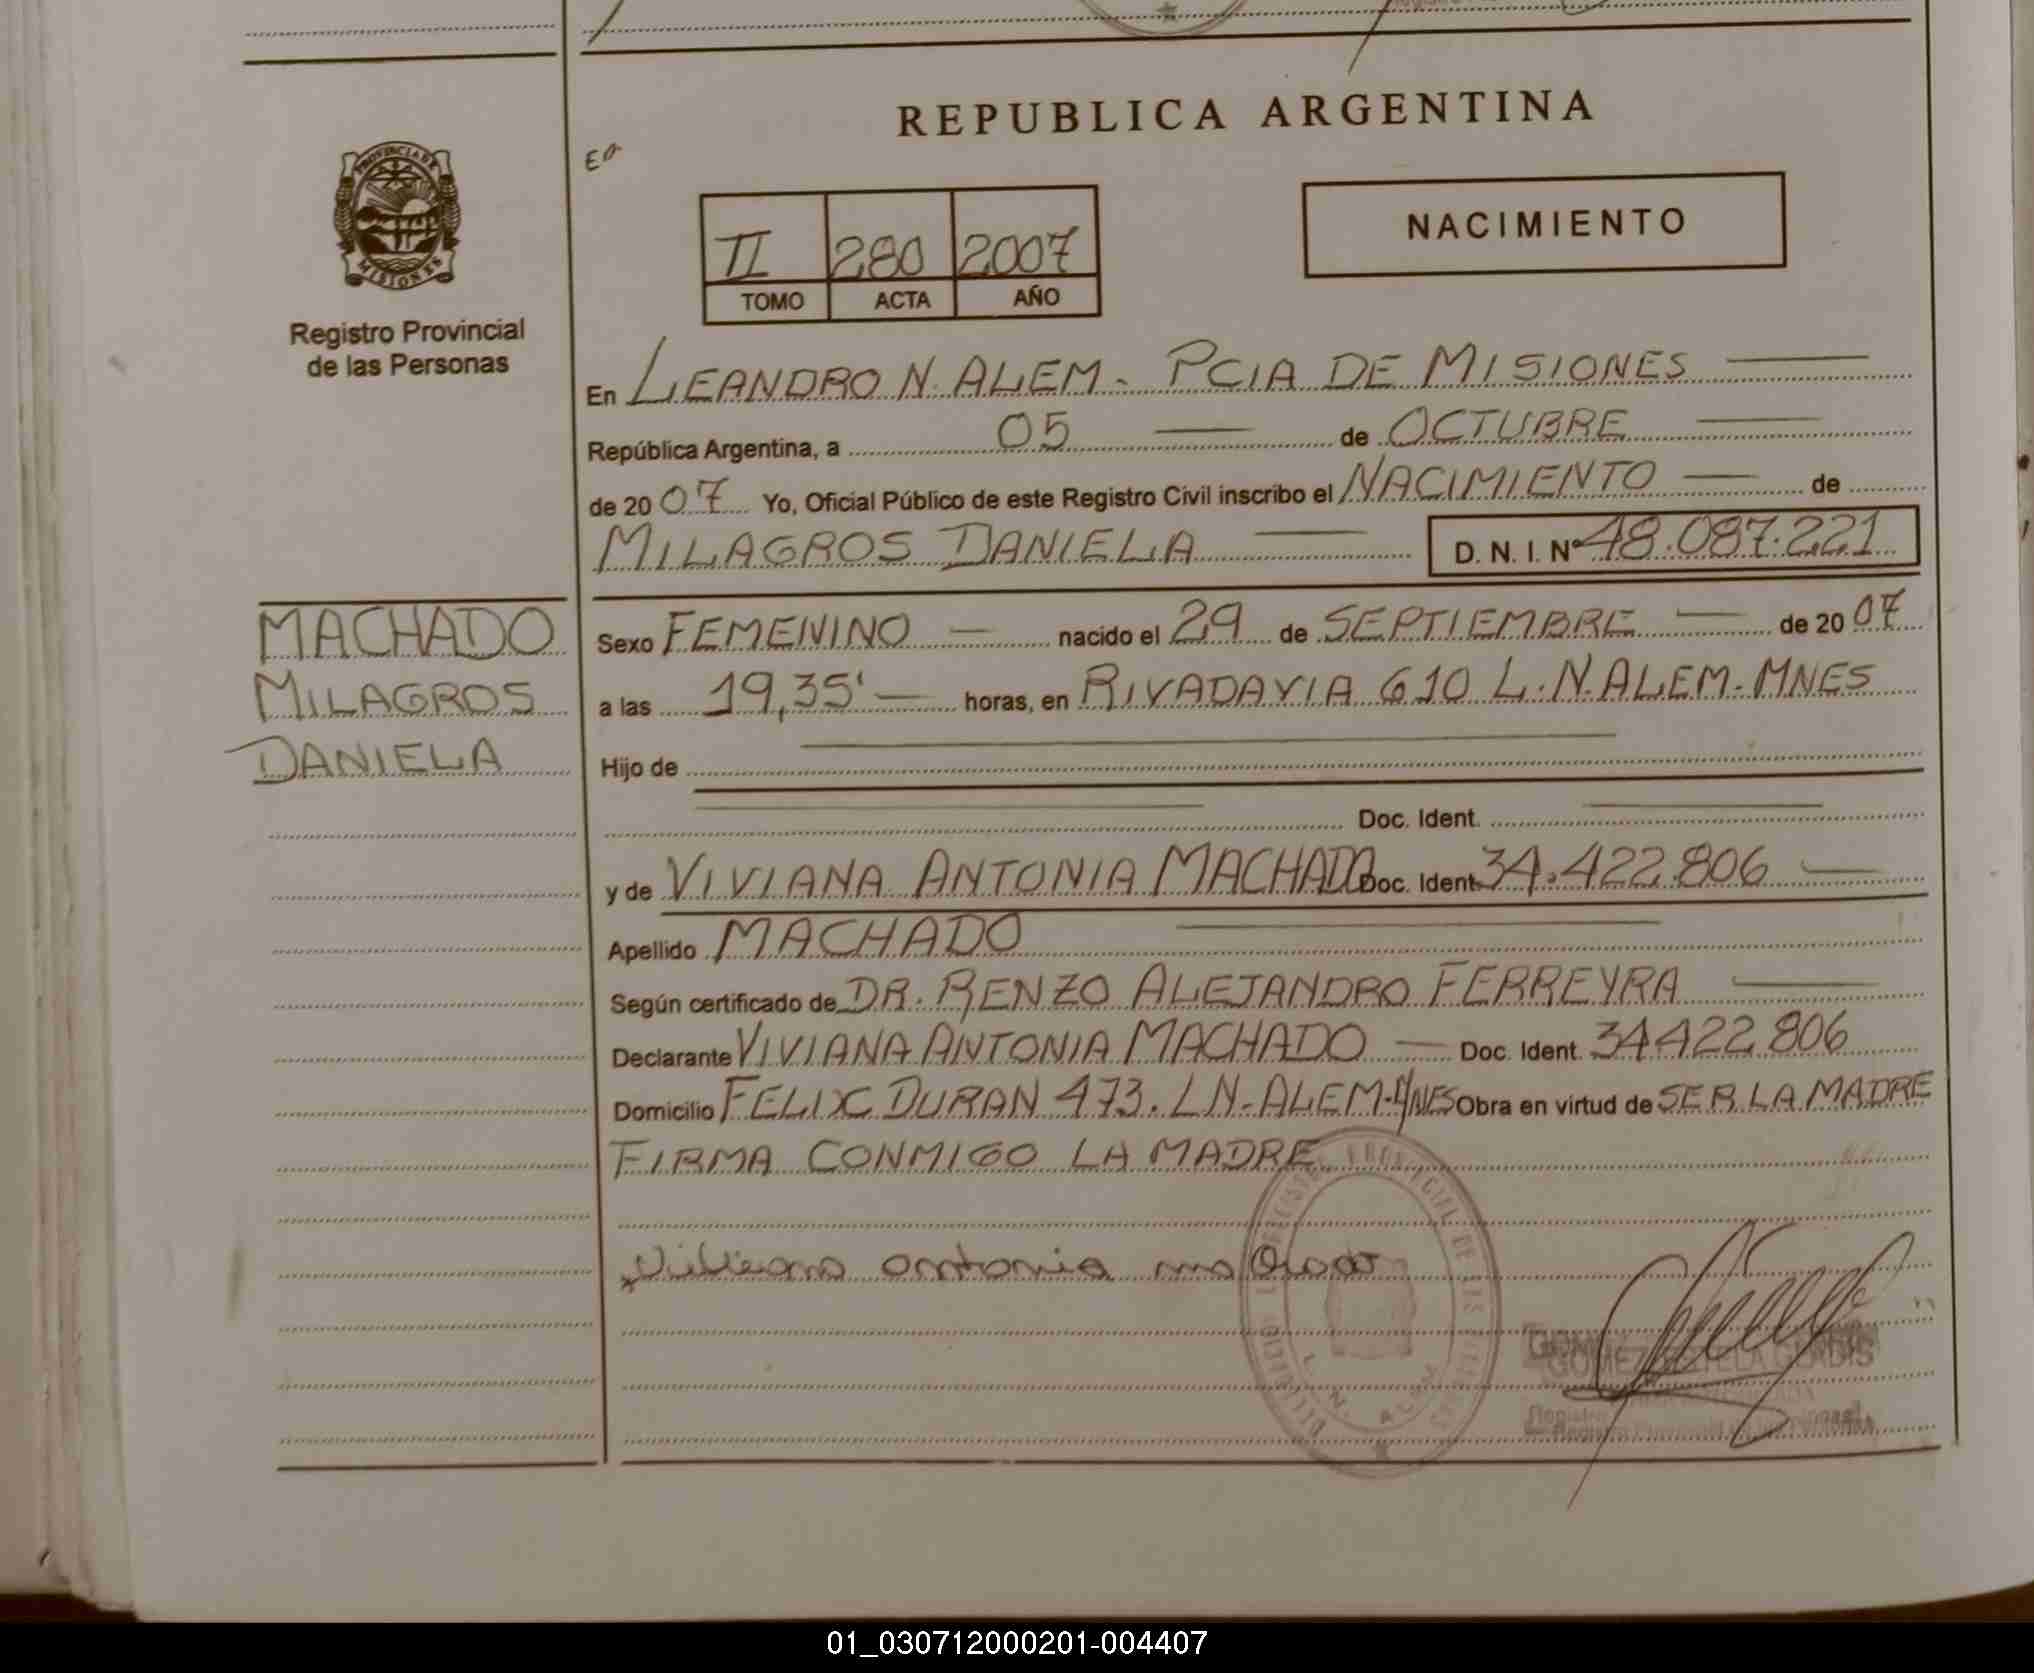 REPUBLICA ARGENTINA
PROVINCIA DE
MISIONES
Registro Provincial
de las Personas
II 280 2007
TOMO ACTA AÑO
NACIMIENTO
En LEANDRO N. ALEM - PCIA DE MISIONES
República Argentina, a 05 de OCTUBRE
de 2007 Yo, Oficial Público de este Registro Civil inscribo el NACIMIENTO de
MILAGROS DANIELA D. N. I. Nº 48.087.221
MACHADO
MILAGROS
DANIELA
Sexo FEMENINO nacido el 29 de SEPTIEMBRE de 2007
a las 19,35' horas, en RIVADAVIA 610 L.N.ALEM-MNES
Hijo de
Doc. Ident.
y de VIVIANA ANTONIA MACHADO Doc. Ident. 34.422.806
Apellido MACHADO
Según certificado de DR. RENZO ALEJANDRO FERREYRA
Declarante VIVIANA ANTONIA MACHADO Doc. Ident. 34422806
Domicilio FELIX DURAN 473. LN-ALEM-MNES Obra en virtud de SER LA MADRE
FIRMA CONMIGO LA MADRE
REGISTRO PROVINCIAL DE LAS
L. N. ALEM
antonia
GOMEZ GLADIS
01_030712000201-004407